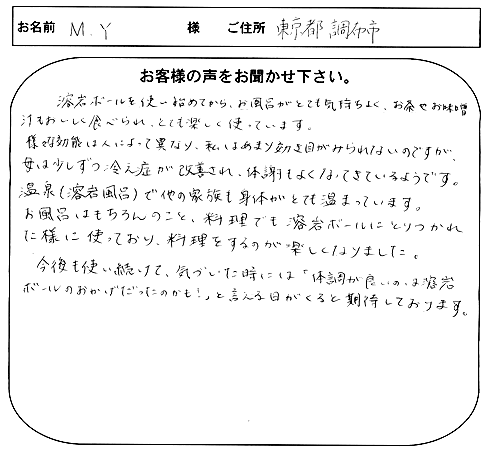 お名前 M.Y 様 ご住所 東京都調布市
お客様の声をお聞かせ下さい。
溶岩ボールを使い始めてから、お風呂がとても気持ちよく、お茶やお味噌
汁もおいしく食べられ、とても楽しく使っています。
様々な効能は人によって異なり、私はあまり効き目がみられないのですが、
母は少しずつ冷え症が改善され、体調もよくなってきているようです。
温泉(溶岩風呂)で他の家族も身体がとても温まっています。
お風呂はもちろんのこと、料理でも溶岩ボールにとりつかれ
た様に使っており、料理をするのが楽しくなりました。
今後も使い続けて、気づいた時には「体調が良いのは溶岩
ボールのおかげだったのかも!」と言える日がくると期待しております。